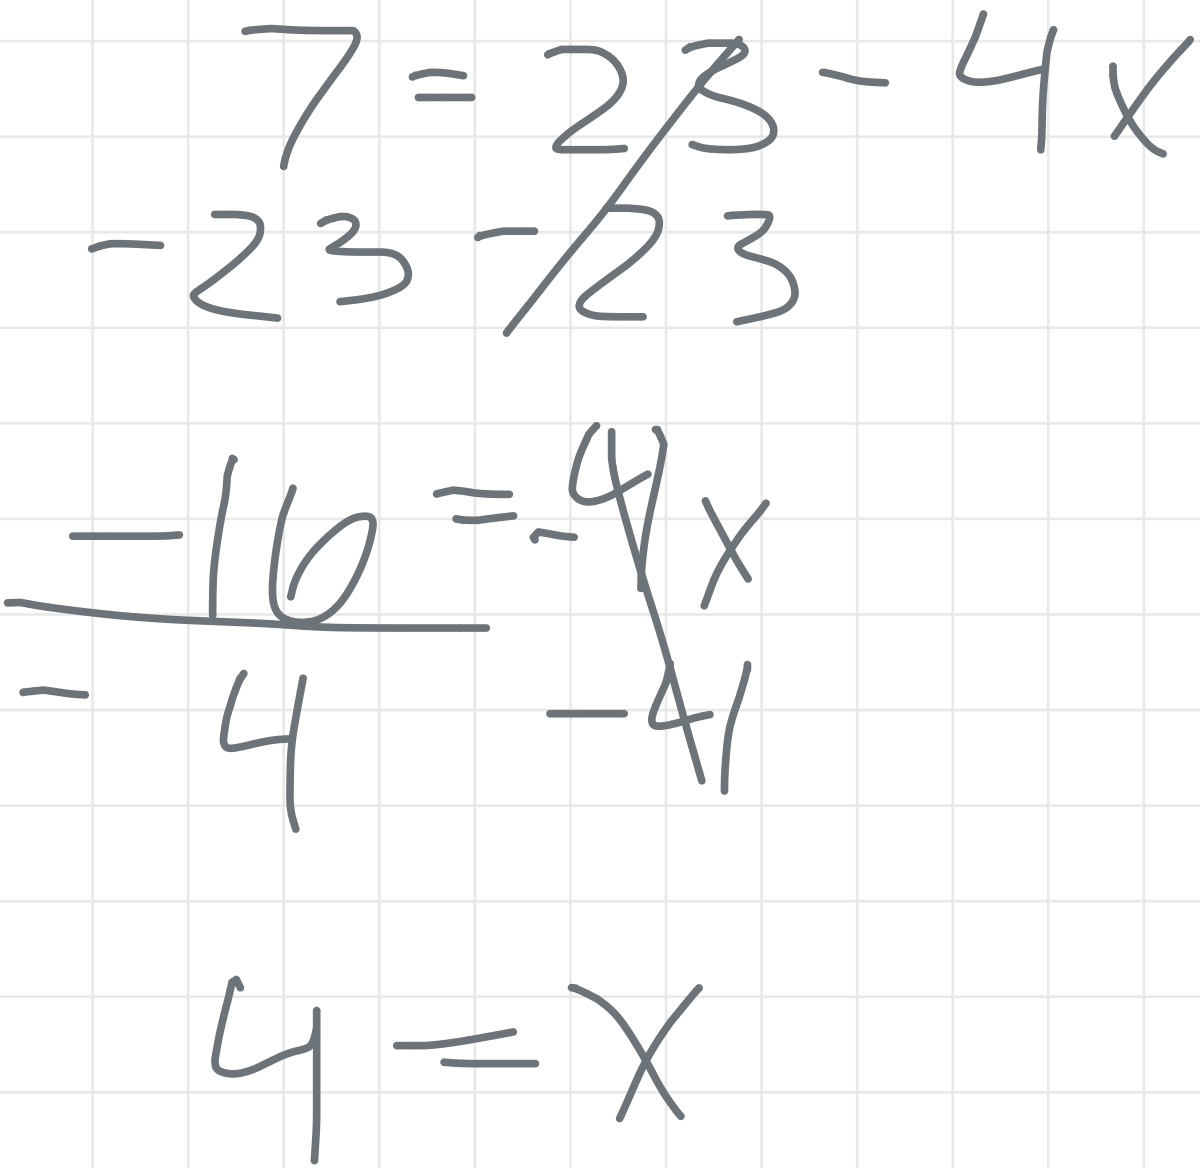 7 = 23 - 4x
-23 -23
-16 = -4x
- 4 -4
4 = x